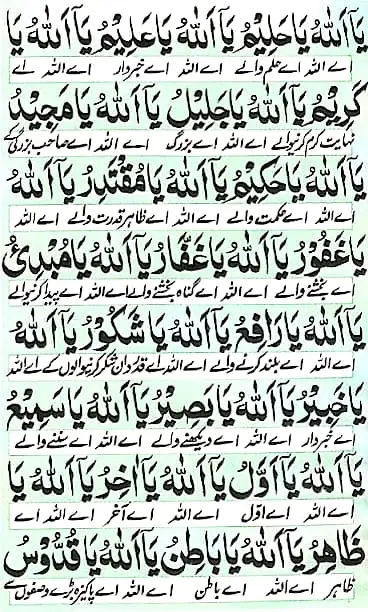 يَا اَللهُ يَا حَلِيْمُ يَا اَللهُ يَا عَلِيْمُ يَا اَللهُ يَا
اے اللہ اے حلم والے اے اللہ اے خبردار اے اللہ اے
كَرِيْمُ يَا اَللهُ يَا جَلِيْلُ يَا اَللهُ يَا مَجِيْدُ
نہایت کرم کرنیوالے اے اللہ اے بزرگ اے اللہ اے صاحب بزرگی کے
يَا اَللهُ يَا حَكِيْمُ يَا اَللهُ يَا مُقْتَدِرُ يَا اَللهُ
اے اللہ اے حکمت والے اے اللہ اے ظاہر قدرت والے اے اللہ
يَا غَفُوْرُ يَا اَللهُ يَا غَفَّارُ يَا اَللهُ يَا مُبْدِئُ
اے بخشنے والے اے اللہ اے گناہ بخشنے والے اے اللہ اے پیدا کرنیوالے
يَا اَللهُ يَا رَافِعُ يَا اَللهُ يَا شَكُوْرُ يَا اَللهُ
اے اللہ اے بلند کرنے والے اے اللہ اے قدردان شکر کرنیوالوں کے اے اللہ
يَا خَبِيْرُ يَا اَللهُ يَا بَصِيْرُ يَا اَللهُ يَا سَمِيْعُ
اے خبردار اے اللہ اے دیکھنے والے اے اللہ اے سننے والے
يَا اَللهُ يَا اَوَّلُ يَا اَللهُ يَا اٰخِرُ يَا اَللهُ يَا
اے اللہ اے اوّل اے اللہ اے آخر اے اللہ اے
ظَاهِرُ يَا اَللهُ يَا بَاطِنُ يَا اَللهُ يَا قُدُّوْسُ
ظاہر اے اللہ اے باطن اے اللہ اے پاکیزہ بڑے وصفوں سے